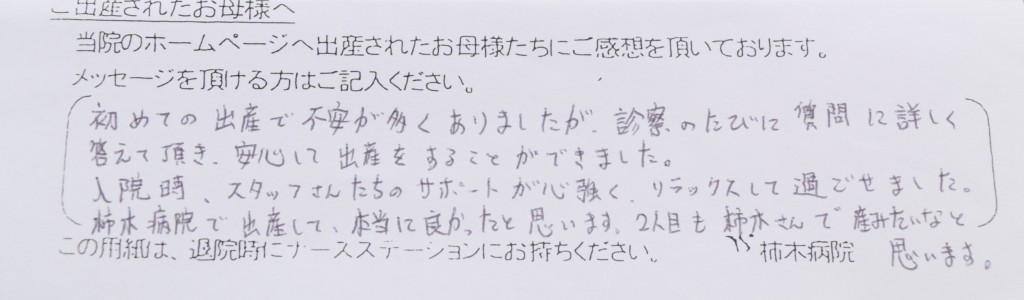 ご出産されたお母様へ
当院のホームページへ出産されたお母様たちにご感想を頂いております。
メッセージを頂ける方はご記入ください。
初めての出産で不安が多くありましたが、診察のたびに質問に詳しく
答えて頂き、安心して出産をすることができました。
入院時、スタッフさんたちのサポートが心強く、リラックスして過ごせました。
柿木病院で出産して、本当に良かったと思います。2人目も柿木さんで産みたいなと
思います。
この用紙は、退院時にナースステーションにお持ちください。 柿木病院